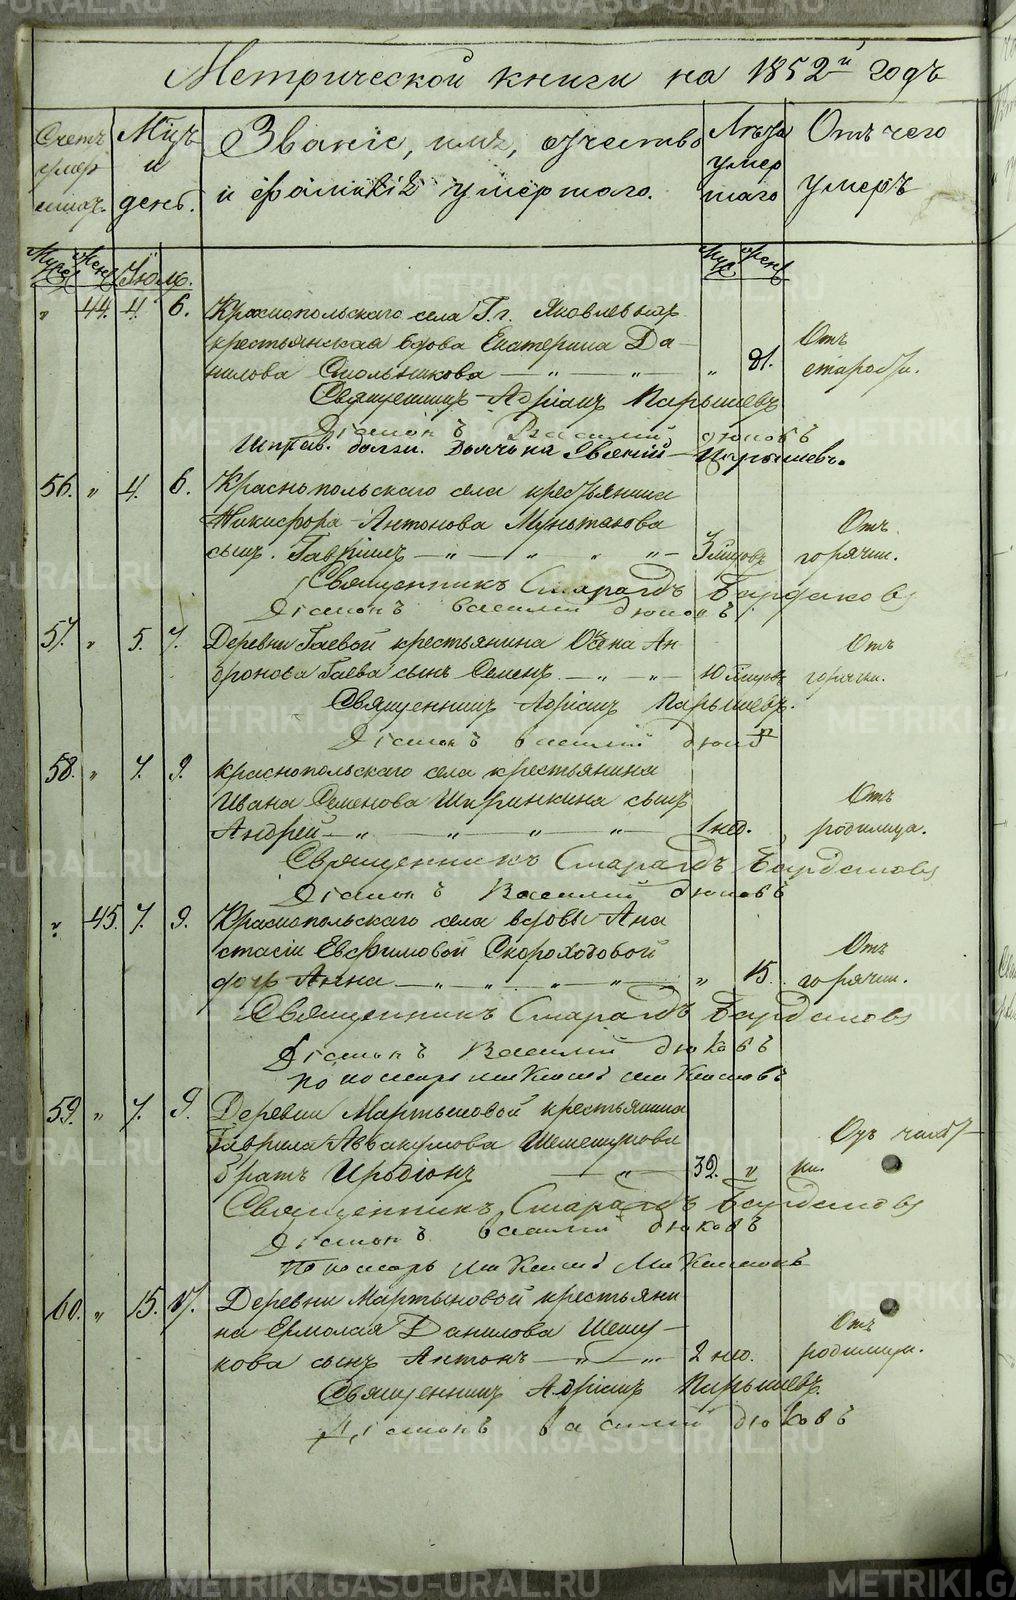 Метрической книги на 1852й годъ
Счетъ умерших.
Мцъ и день.
Званіе, имя, отчество и фамилія умершаго.
Лѣта умершаго
Отъ чего умеръ
Муж. Жен. Іюль. Муж. Жен.
" 44. 4. 6. Краснопольскаго села Г.г. Яковлевыхъ
крестьянская вдова Екатерина Да-
нилова Смольникова — " — " — " 81. Отъ старости.
Священникъ Адріанъ Парышевъ
Діаконъ Василій Дюковъ
Исправ. должн. Дьячка Парышевъ.
56. " 4. 6. Краснопольскаго села крестьянина
Никифора Антонова Мунтанова
сынъ Гавріилъ — " — " " " — 3 мцовъ Отъ горячки.
Священникъ Смарагдъ Бурдаковъ
Діаконъ Василій Дюковъ
57. " 5. 7. Деревни Гаевой крестьянина Ан-
дронова Гаева сынъ Семенъ — " — " — 10 мцовъ Отъ горячки.
Священникъ Адріанъ Парышевъ.
Діаконъ Василій Дюковъ
58. " 7. 9. Краснопольскаго села крестьянина
Ивана Семенова Ширинкина сынъ
Андрей — " — " — " — " — 1 нед. Отъ родимца.
Священникъ Смарагдъ Бурдаковъ
Діаконъ Василій Дюковъ
" 45. 7. 9. Краснопольскаго села вдовы Ана
стасіи Евфимовой Скороходовой
дочь Анна — " — " — " — " — " 15. Отъ горячки.
Священникъ Смарагдъ Бурдаковъ
Діаконъ Василій Дюковъ
Пономарь
59. " 7. 9. Деревни Мартыновой крестьянина
Гаврила Аввакумова Шемешукова
братъ Иродіонъ — " — 39. " Отъ
Священникъ Смарагдъ Бурдаковъ
Діаконъ Василій Дюковъ
Пономарь
60. " 15. 17. Деревни Мартыновой крестьяни
на Ермолая Данилова Шему-
кова сынъ Антонъ — " — " — 2 нед. Отъ родимца.
Священникъ Адріанъ Парышевъ.
Діаконъ Василій Дюковъ
METRIKI.GASO-URAL.RU